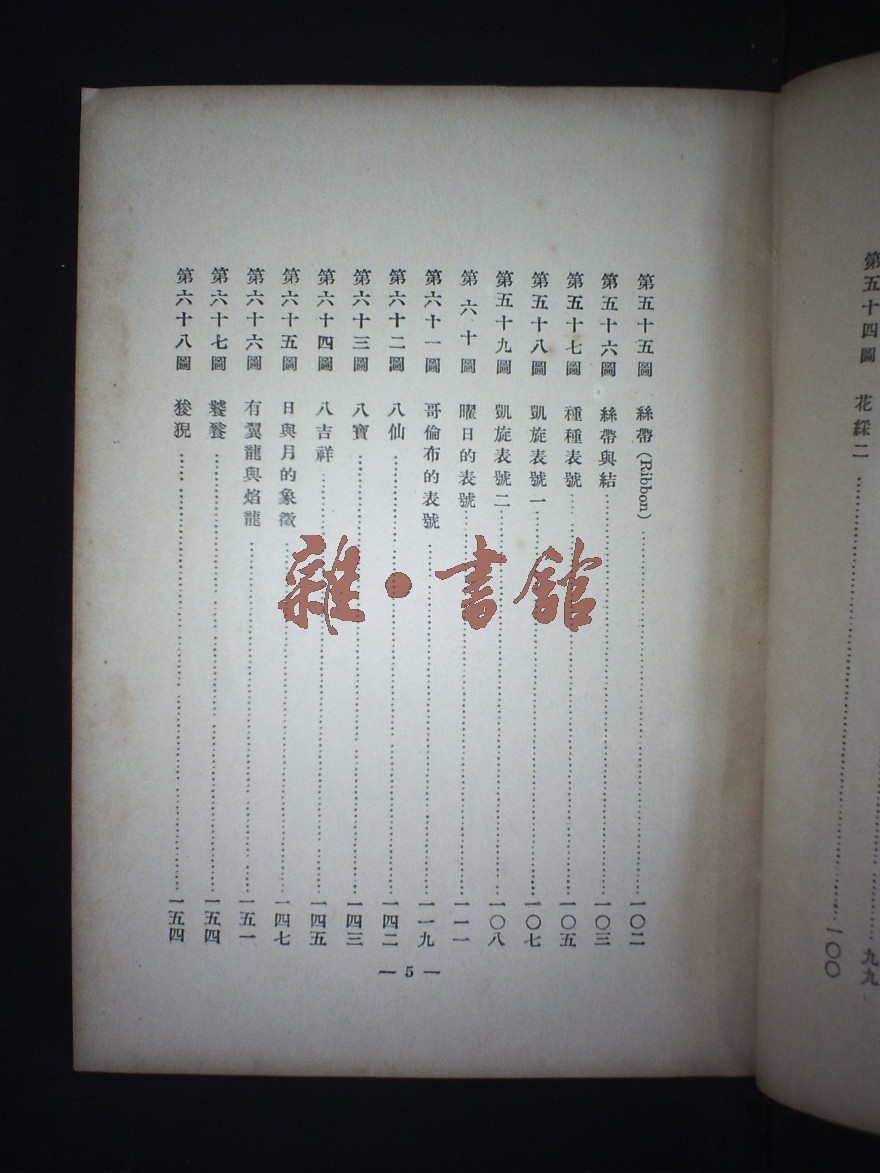 第五十四圖 花綵二
一〇〇
九九
第五十五圖 絲帶(Ribbon) 一〇二
第五十六圖 絲帶與結 一〇三
第五十七圖 種種表號 一〇五
第五十八圖 凱旋表號一 一〇七
第五十九圖 凱旋表號二 一〇八
第六十圖 曜日的表號 一一一
第六十一圖 哥倫布的表號 一一九
第六十二圖 八仙 一四二
第六十三圖 八寶 一四三
第六十四圖 八吉祥 一四五
第六十五圖 日與月的象徵 一四七
第六十六圖 有翼龍與焰龍 一五一
第六十七圖 饕餮 一五四
第六十八圖 狻猊 一五四
— 5 —
雜·書館